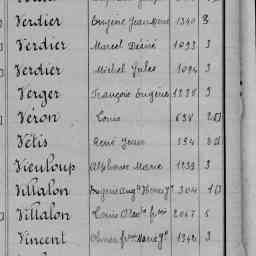 Verdier Eugène Jean 1340 3
Verdier Marcel Désiré 1093 3
Verdier Michel Jules 1094 3
Verger François Eugène 1238 3
Véron Louis 638 2
Vétis René Jean 334
Vieuloup Alphonse Marie 1239 3
Villalon Eugène Aug. Henri 304 1
Villalon Louis 2067 5
Vincent Marie 1342 3